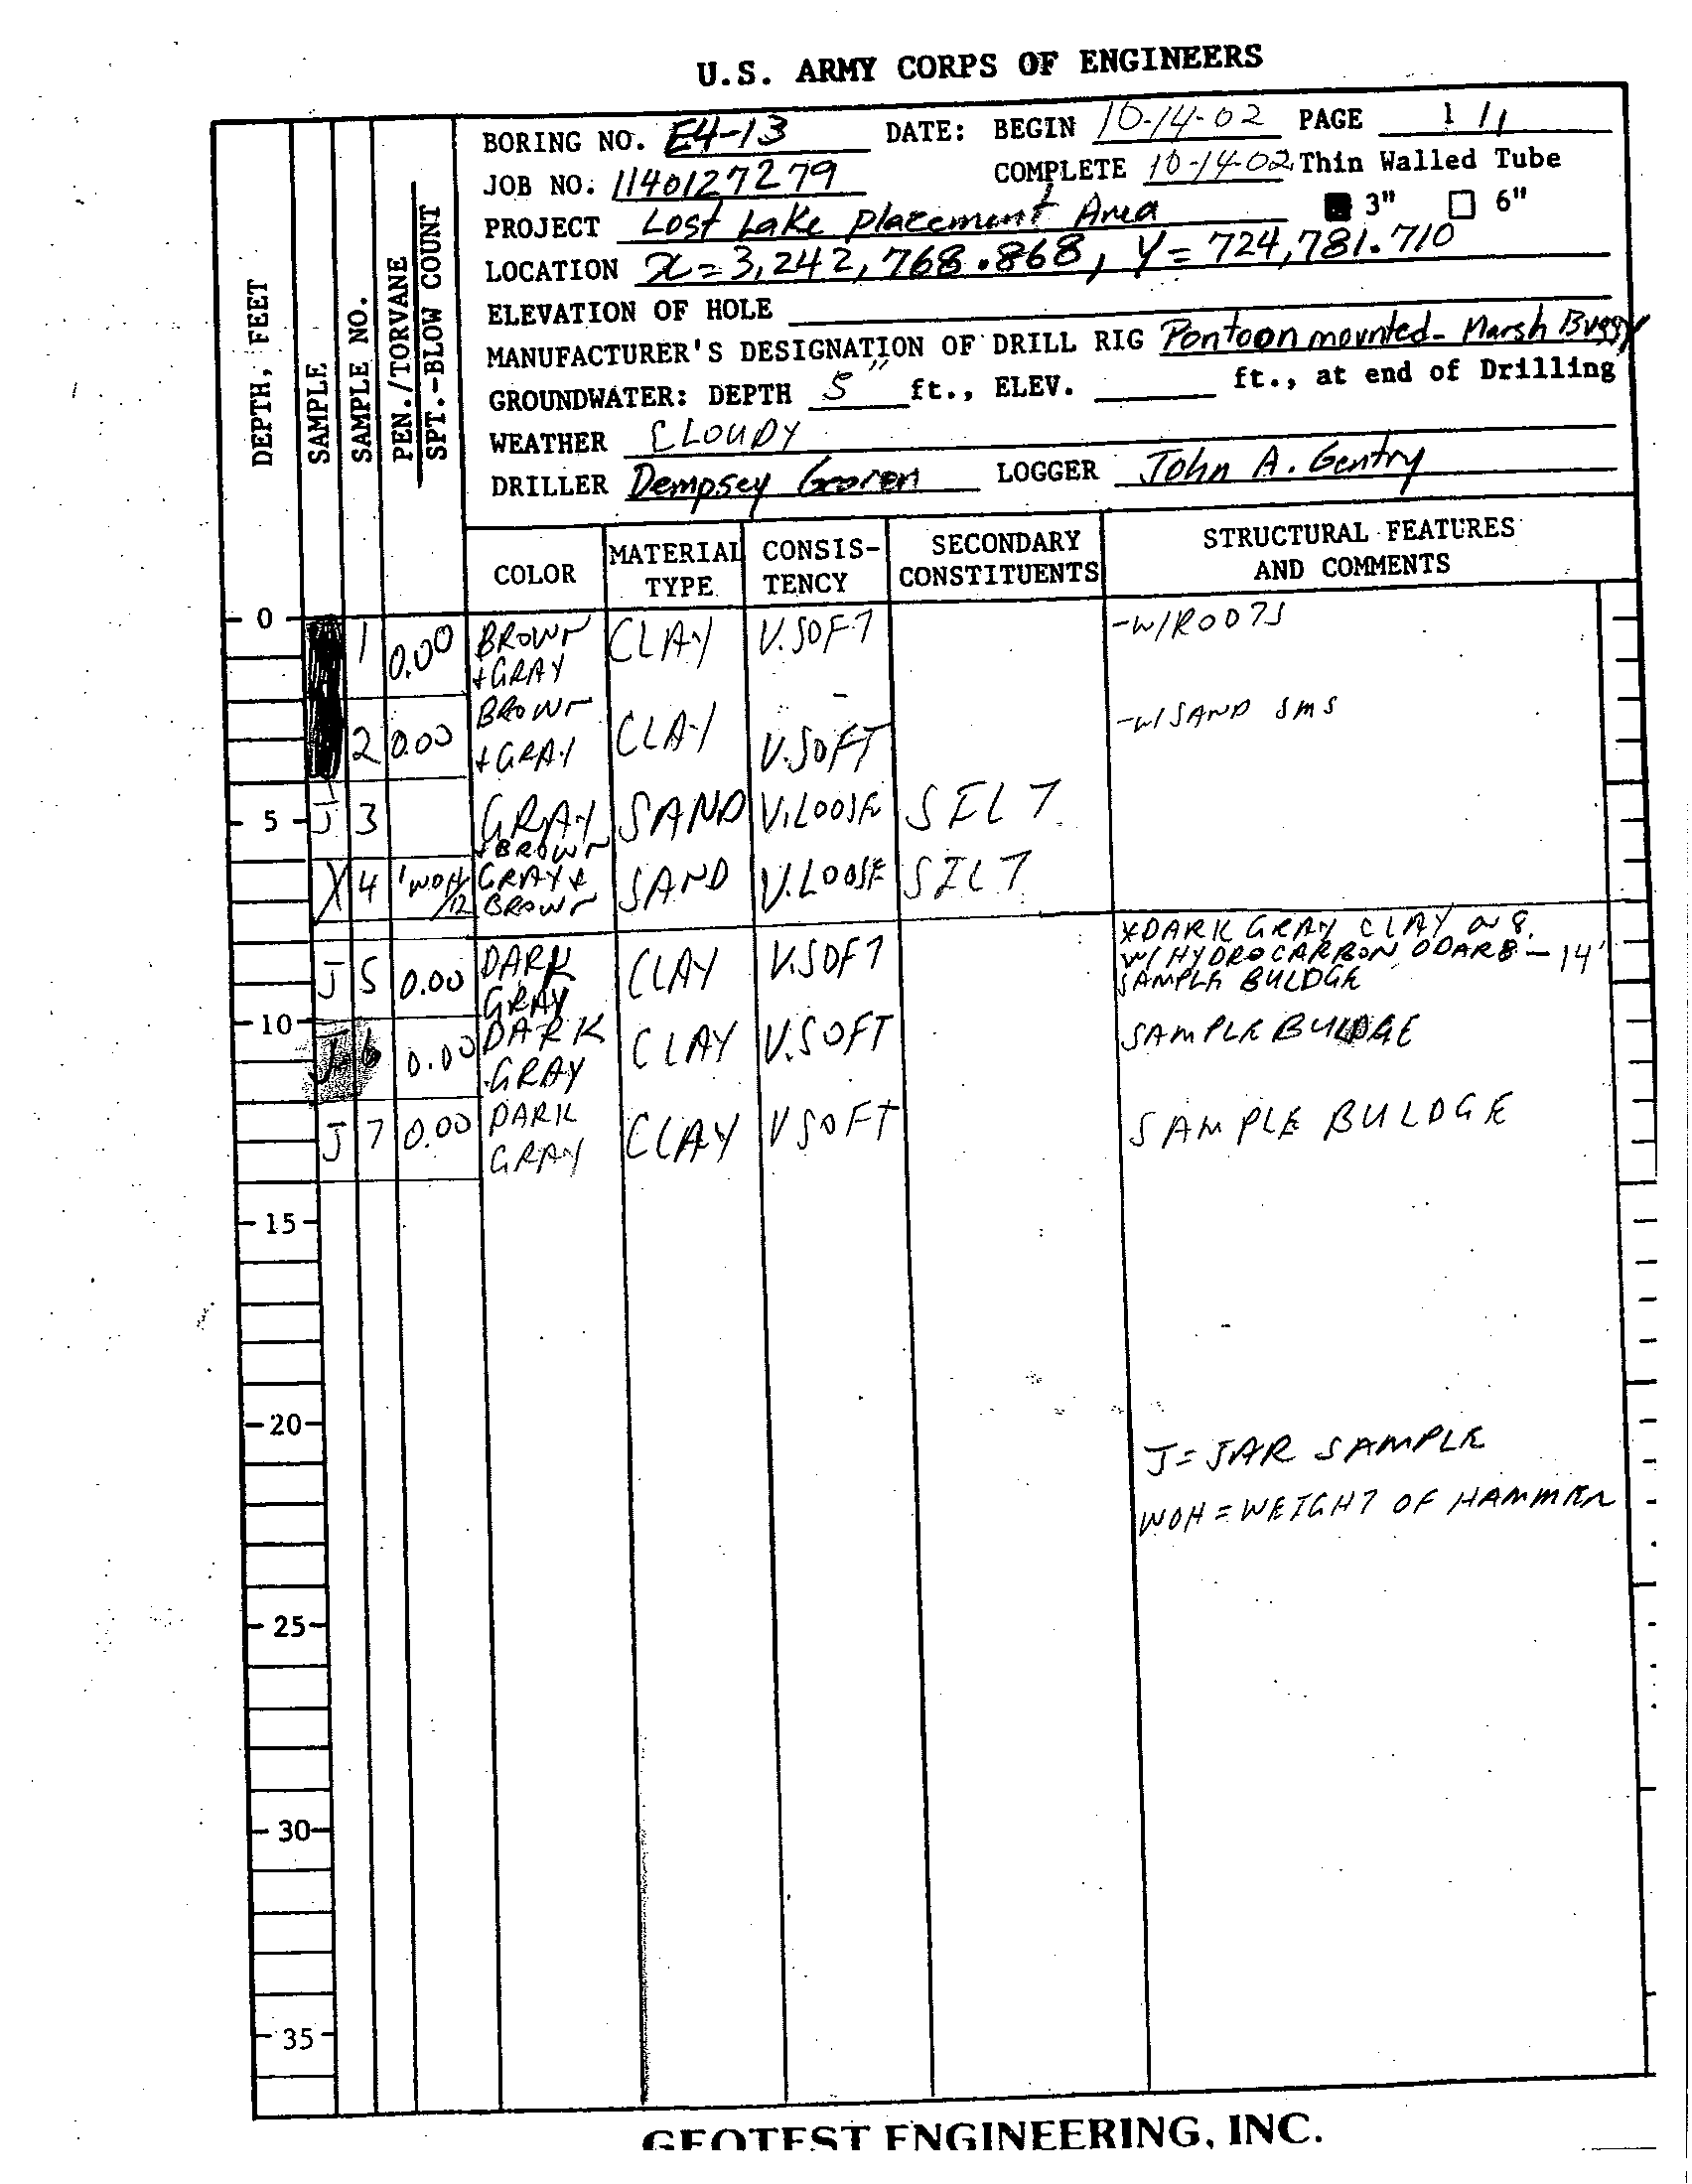 U.S. ARMY CORPS OF ENGINEERS
BORING NO. E4-13 DATE: BEGIN 10-14-02 PAGE 1 / 1
JOB NO. 1140127279 COMPLETE 10-14-02 Thin Walled Tube
PROJECT Lost Lake Placement Area 3" 6"
LOCATION X=3,242,768.868, Y=724,781.710
ELEVATION OF HOLE
MANUFACTURER'S DESIGNATION OF DRILL RIG Pontoon mounted- Marsh Buggy
GROUNDWATER: DEPTH 5" ft., ELEV. ft., at end of Drilling
WEATHER CLOUDY
DRILLER Dempsey LOGGER John A. Gentry
DEPTH, FEET
SAMPLE
SAMPLE NO.
PEN./TORVANE
SPT.-BLOW COUNT
COLOR MATERIAL TYPE CONSIS-TENCY SECONDARY CONSTITUENTS STRUCTURAL FEATURES AND COMMENTS
0 1 0.00 BROWN +GRAY CLAY V.SOFT -W/ROOTS
2 0.00 BROWN +GRAY CLAY V.SOFT -W/SAND SMS
5 J 3 GRAY +BROWN SAND V.LOOSE SILT
X 4 WOH/12 GRAY+ BROWN SAND V.LOOSE SILT
J 5 0.00 DARK GRAY CLAY V.SOFT
*DARK GRAY CLAY 8.
W/ HYDROCARBON ODAR 8 - 14'
SAMPLE BULDGE
10 J 6 0.00 DARK GRAY CLAY V.SOFT SAMPLE BULDGE
J 7 0.00 DARK GRAY CLAY V SOFT SAMPLE BULDGE
15
20
J= JAR SAMPLE
WOH = WEIGHT OF HAMMER
25
30
35
GEOTEST ENGINEERING, INC.